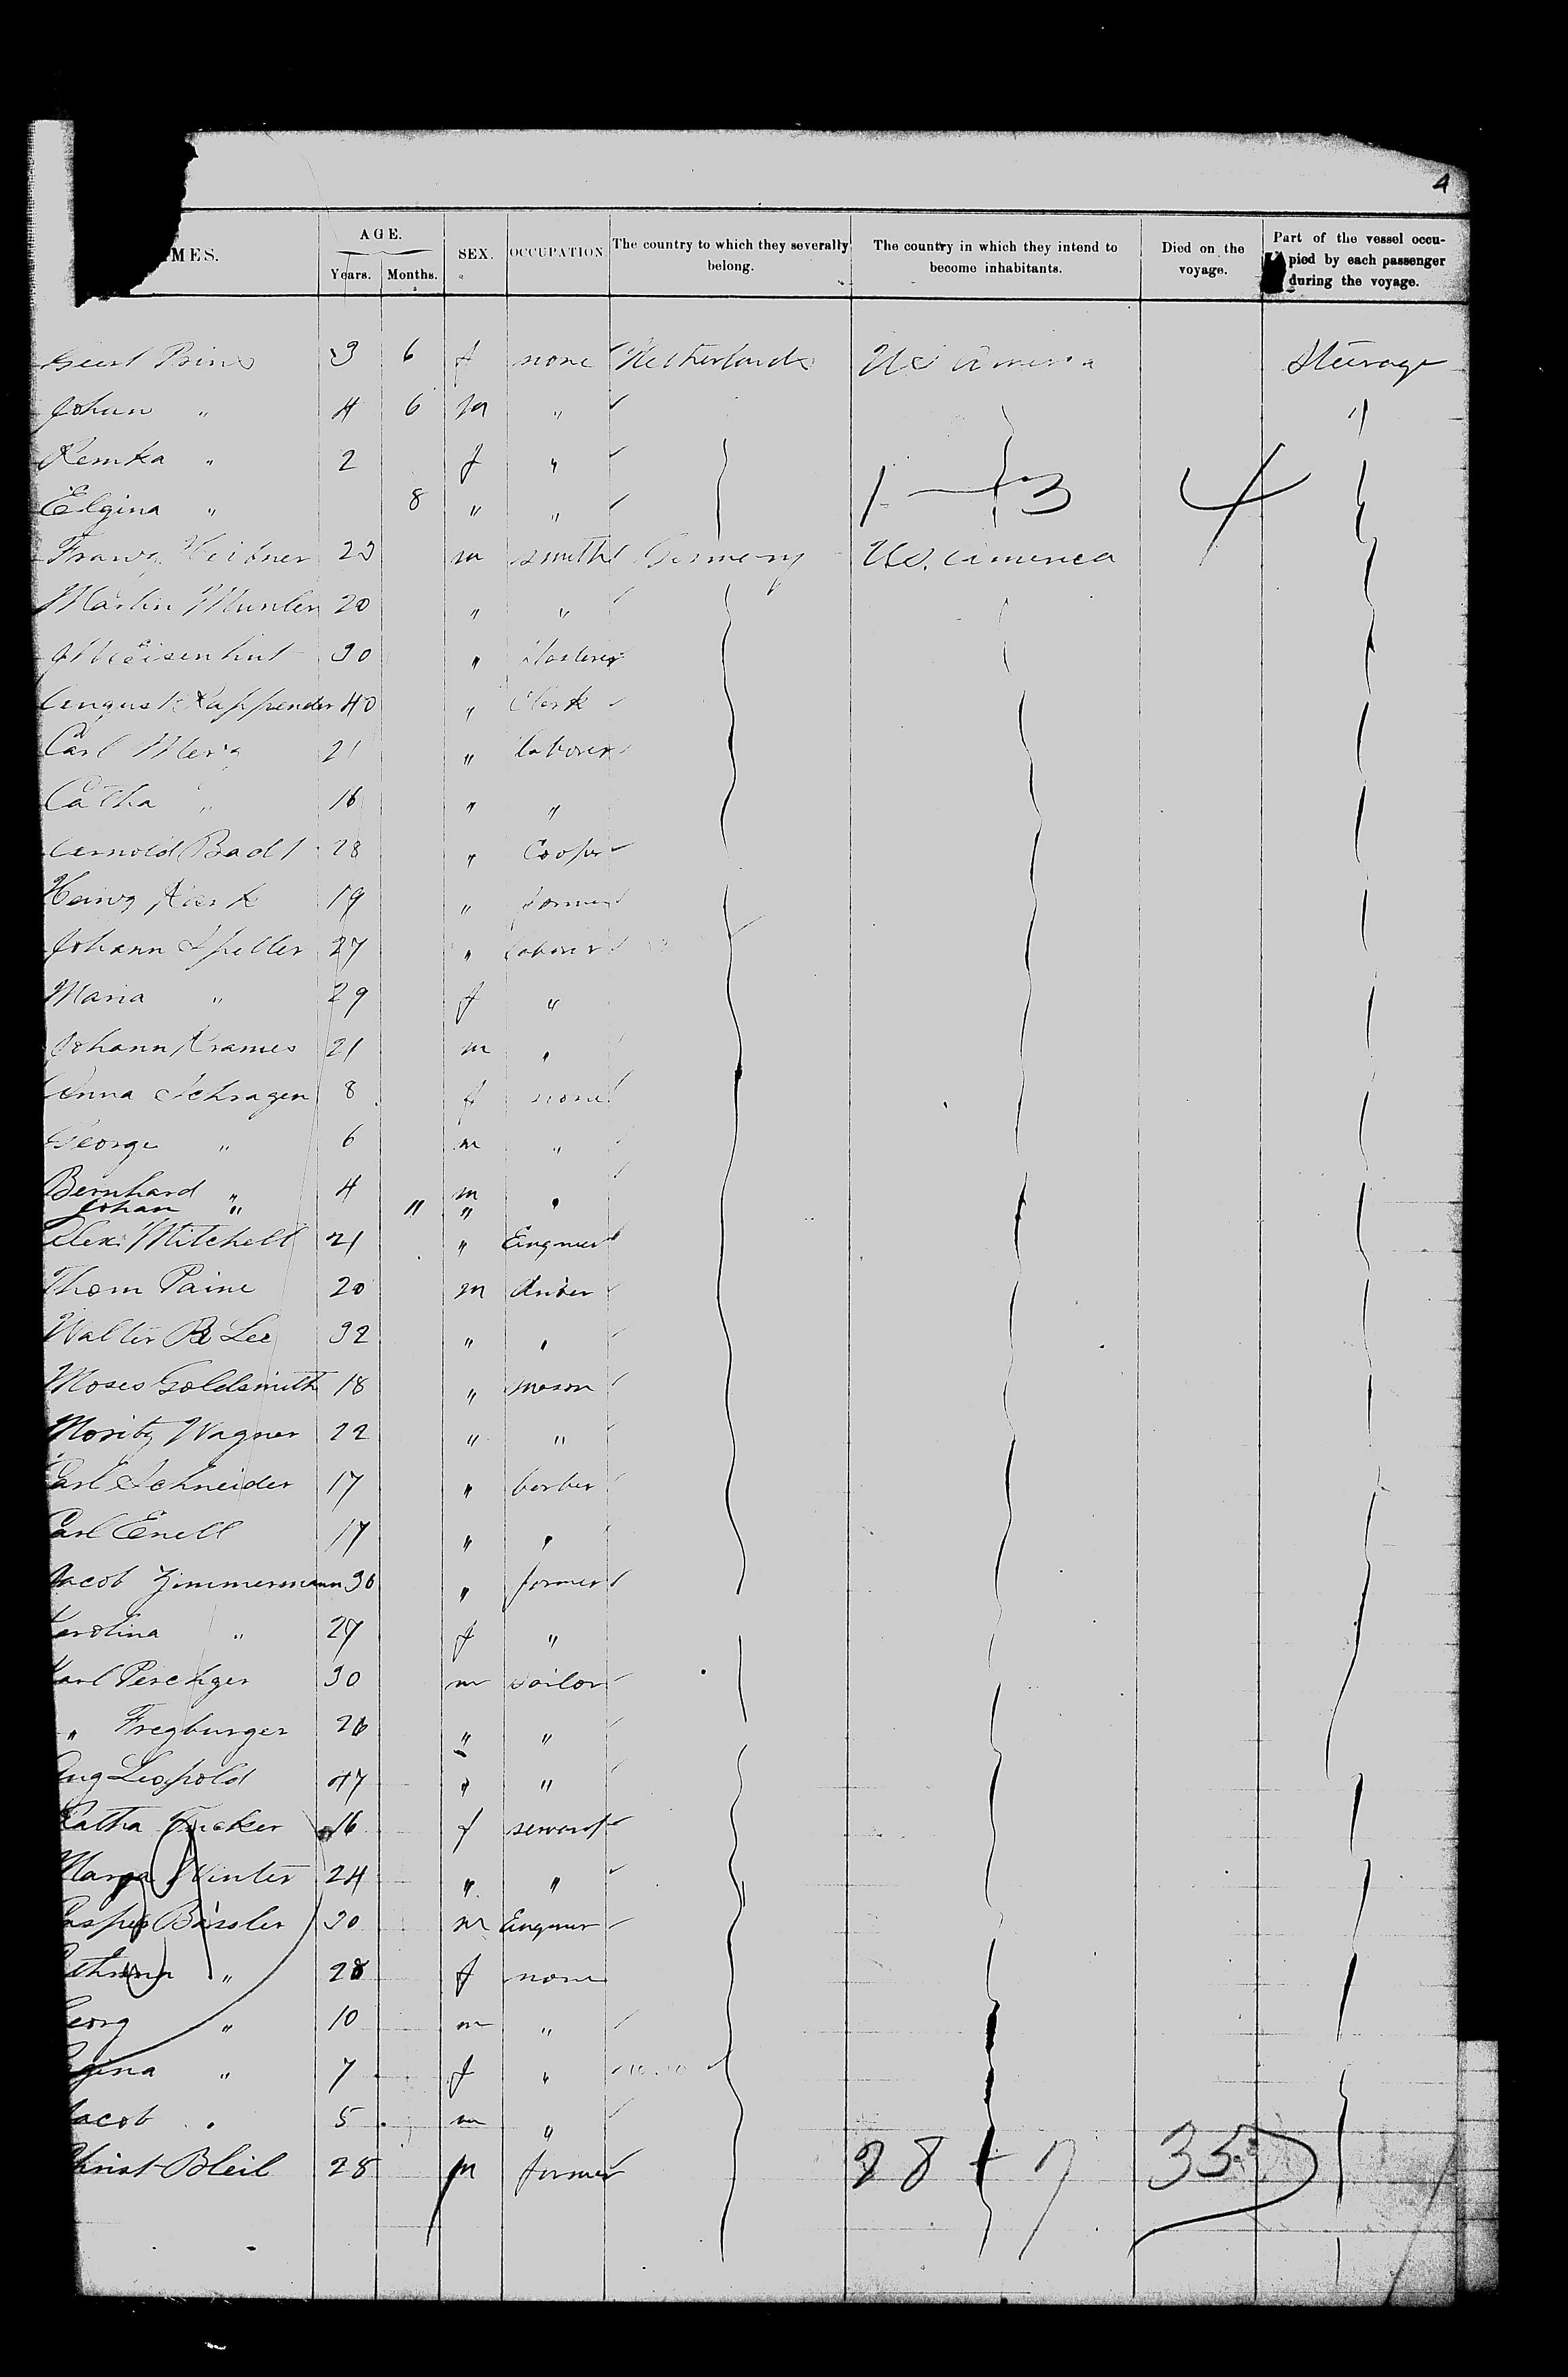 4
MES. AGE. Years. Months. SEX. OCCUPATION The country to which they severally belong. The country in which they intend to become inhabitants. Died on the voyage. Part of the vessel occupied by each passenger during the voyage.
Prins 3 6 f none Netherlands US America Steerage
Johan " 4 6 m " "
Remka " 2 f "
Elgina " 8 " " 1 + 3 4
Franz 23 m smith Germany U.S. America
Martin Munter 20 " "
30 "
August Kappender 40 " Clerk
Carl Merz 21 " laborer
Catha " 16 " "
Arnold Badt 28 " Cooper
19 " farmer
Johann Speller 27 " laborer
Maria " 29 f "
Johann Krames 21 m "
Anna Schragen 8 f none
George " 6 m "
Bernhard " 4 m "
Johan " " "
Alex. Mitchell 21 " Engineer
Thom Paine 20 m driver
Walter Lee 32 " "
Moses Goldsmith 18 " mason
Moritz Wagner 22 " "
Carl Schneider 17 " barber
Carl Enell 17 " "
Jacob Zimmermann 36 " farmer
Karolina " 27 f "
Karl 30 m sailor
" Freyburger 26 " "
Aug Leopold 47 " "
Katha 16 f servant
Marga Winter 24 " "
Bässler 30 m Engineer
" 28 f none
Georg " 10 m "
Regina " 7 f "
Jacob " 5 m "
Christ Bleil 28 m farmer 28 + 7 35